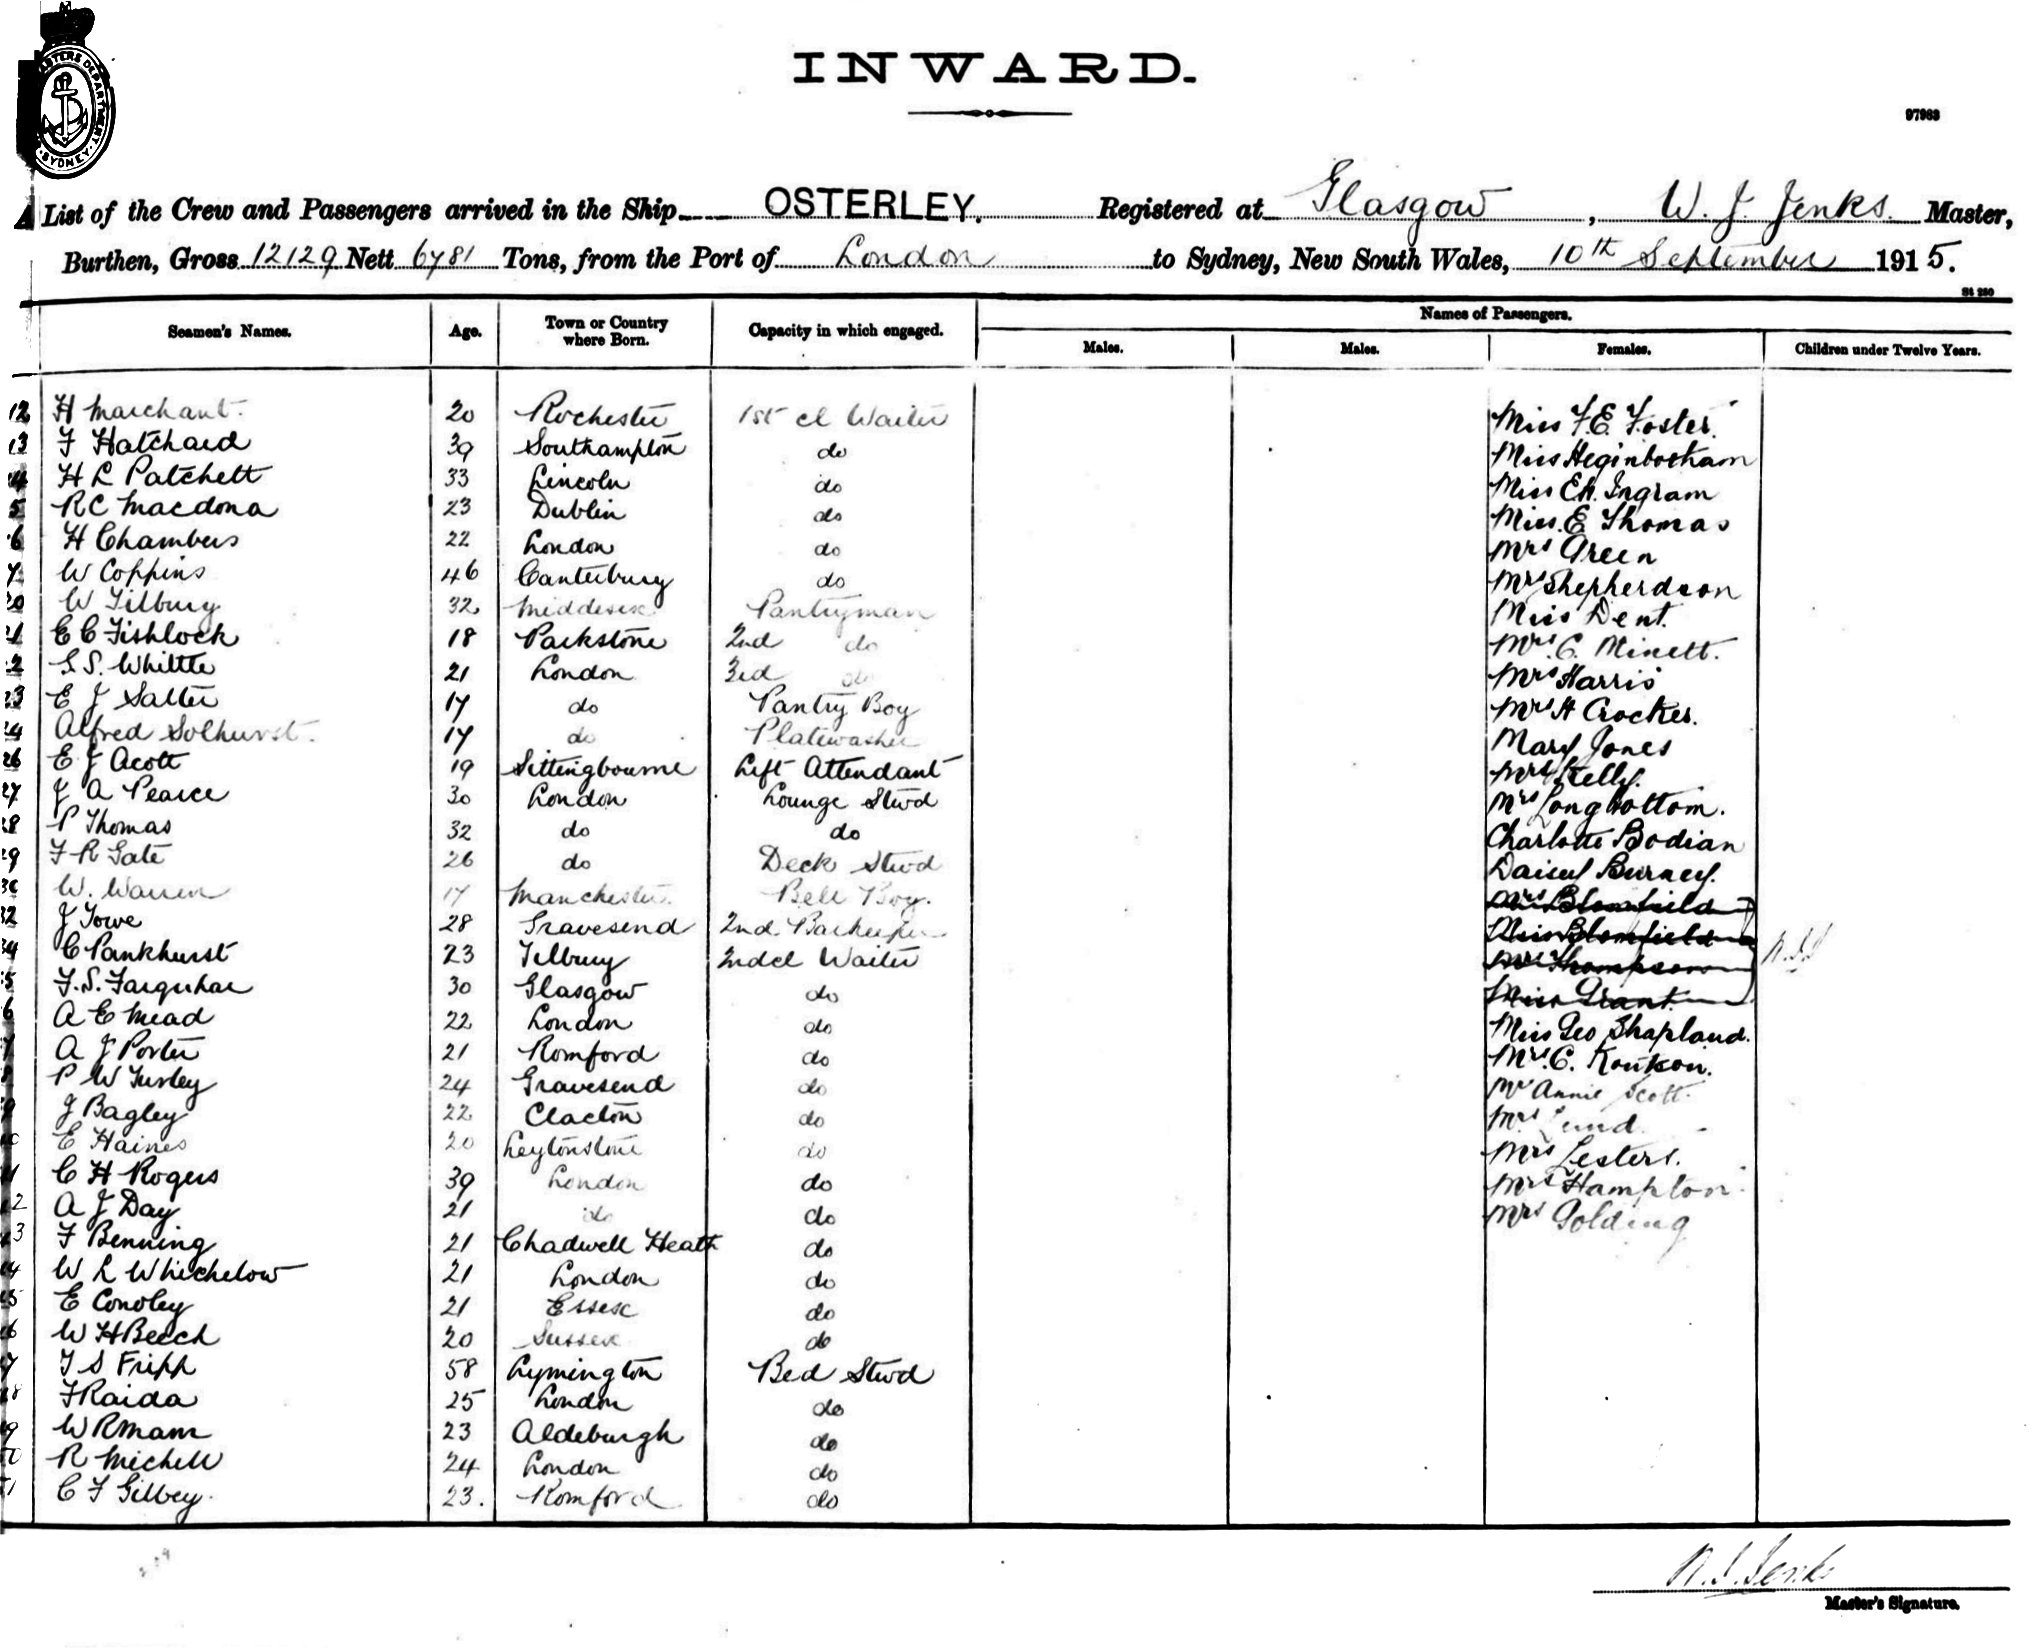 MASTERS DEPARTMENT SYDNEY
INWARD.
97983
List of the Crew and Passengers arrived in the Ship OSTERLEY. Registered at Glasgow, W. J. Jenks. Master,
Burthen, Gross 12129 Nett 6781 Tons, from the Port of London to Sydney, New South Wales, 10th September 1915.
St 250
Seamen's Names. Age. Town or Country where Born. Capacity in which engaged. Names of Passengers.
Males. Males. Females. Children under Twelve Years.
12 H Marchant. 20 Rochester 1st cl Waiter Miss F.E. Foster.
13 F Hatchard 39 Southampton do Miss Heginbotham
14 H L Patchett 33 Lincoln do Miss E.A. Ingram
5 R C Macdona 23 Dublin do Miss. E Thomas
6 H Chambers 22 London do Mrs Green
7 W Coppins 46 Canterbury do Mrs Shepherdson
20 W Tilbury 32 Middlesex Pantryman Miss Dent.
21 E C Fishlock 18 Parkstone 2nd do Mrs. C. Minett.
2 S. S. Whittle 21 London 3rd do Mrs Harris
23 E J Salter 17 do Pantry Boy Mrs H Crocker.
24 Alfred Solhurst. 17 do Platewasher Mary Jones
26 E J Acott 19 Sittingbourne Lift Attendant Mrs Kelly.
27 J A Pearce 30 London Lounge Stwd Mrs Longbottom.
28 P Thomas 32 do do Charlotte Bodian
29 F R Gate 26 do Deck Stwd Daisy Burney.
30 W. Warren 17 Manchester. Bell Boy. Mrs Blomfield
32 J Towe 28 Gravesend 2nd Barkeeper Miss Blomfield
34 C Pankhurst 23 Tilbury 2nd cl Waiter Mrs Thompson
5 F. S. Farquhar 30 Glasgow do Miss Grant
6 A E Mead 22 London do Miss Geo Shapland.
7 A J Porter 21 Romford do Mrs. C. Routson.
8 P W Turley 24 Gravesend do Mrs Annie Scott.
9 J Bagley 22 Clacton do Mrs Lund
40 E Haines 20 Leytonstone do Mrs Lesters.
41 C H Rogers 39 London do Mrs Hampton.
42 A J Day 21 do do Mrs Golding
43 F Benning 21 Chadwell Heath do
44 W L Whichelow 21 London do
45 E Conoley 21 Essex do
46 W H Beech 20 Sussex do
47 T S Fripp 58 Lymington Bed Stwd
48 F Raida 25 London do
49 W R Mann 23 Aldeburgh do
50 R Michell 24 London do
51 C F Gilbey. 23. Romford do
Master's Signature.